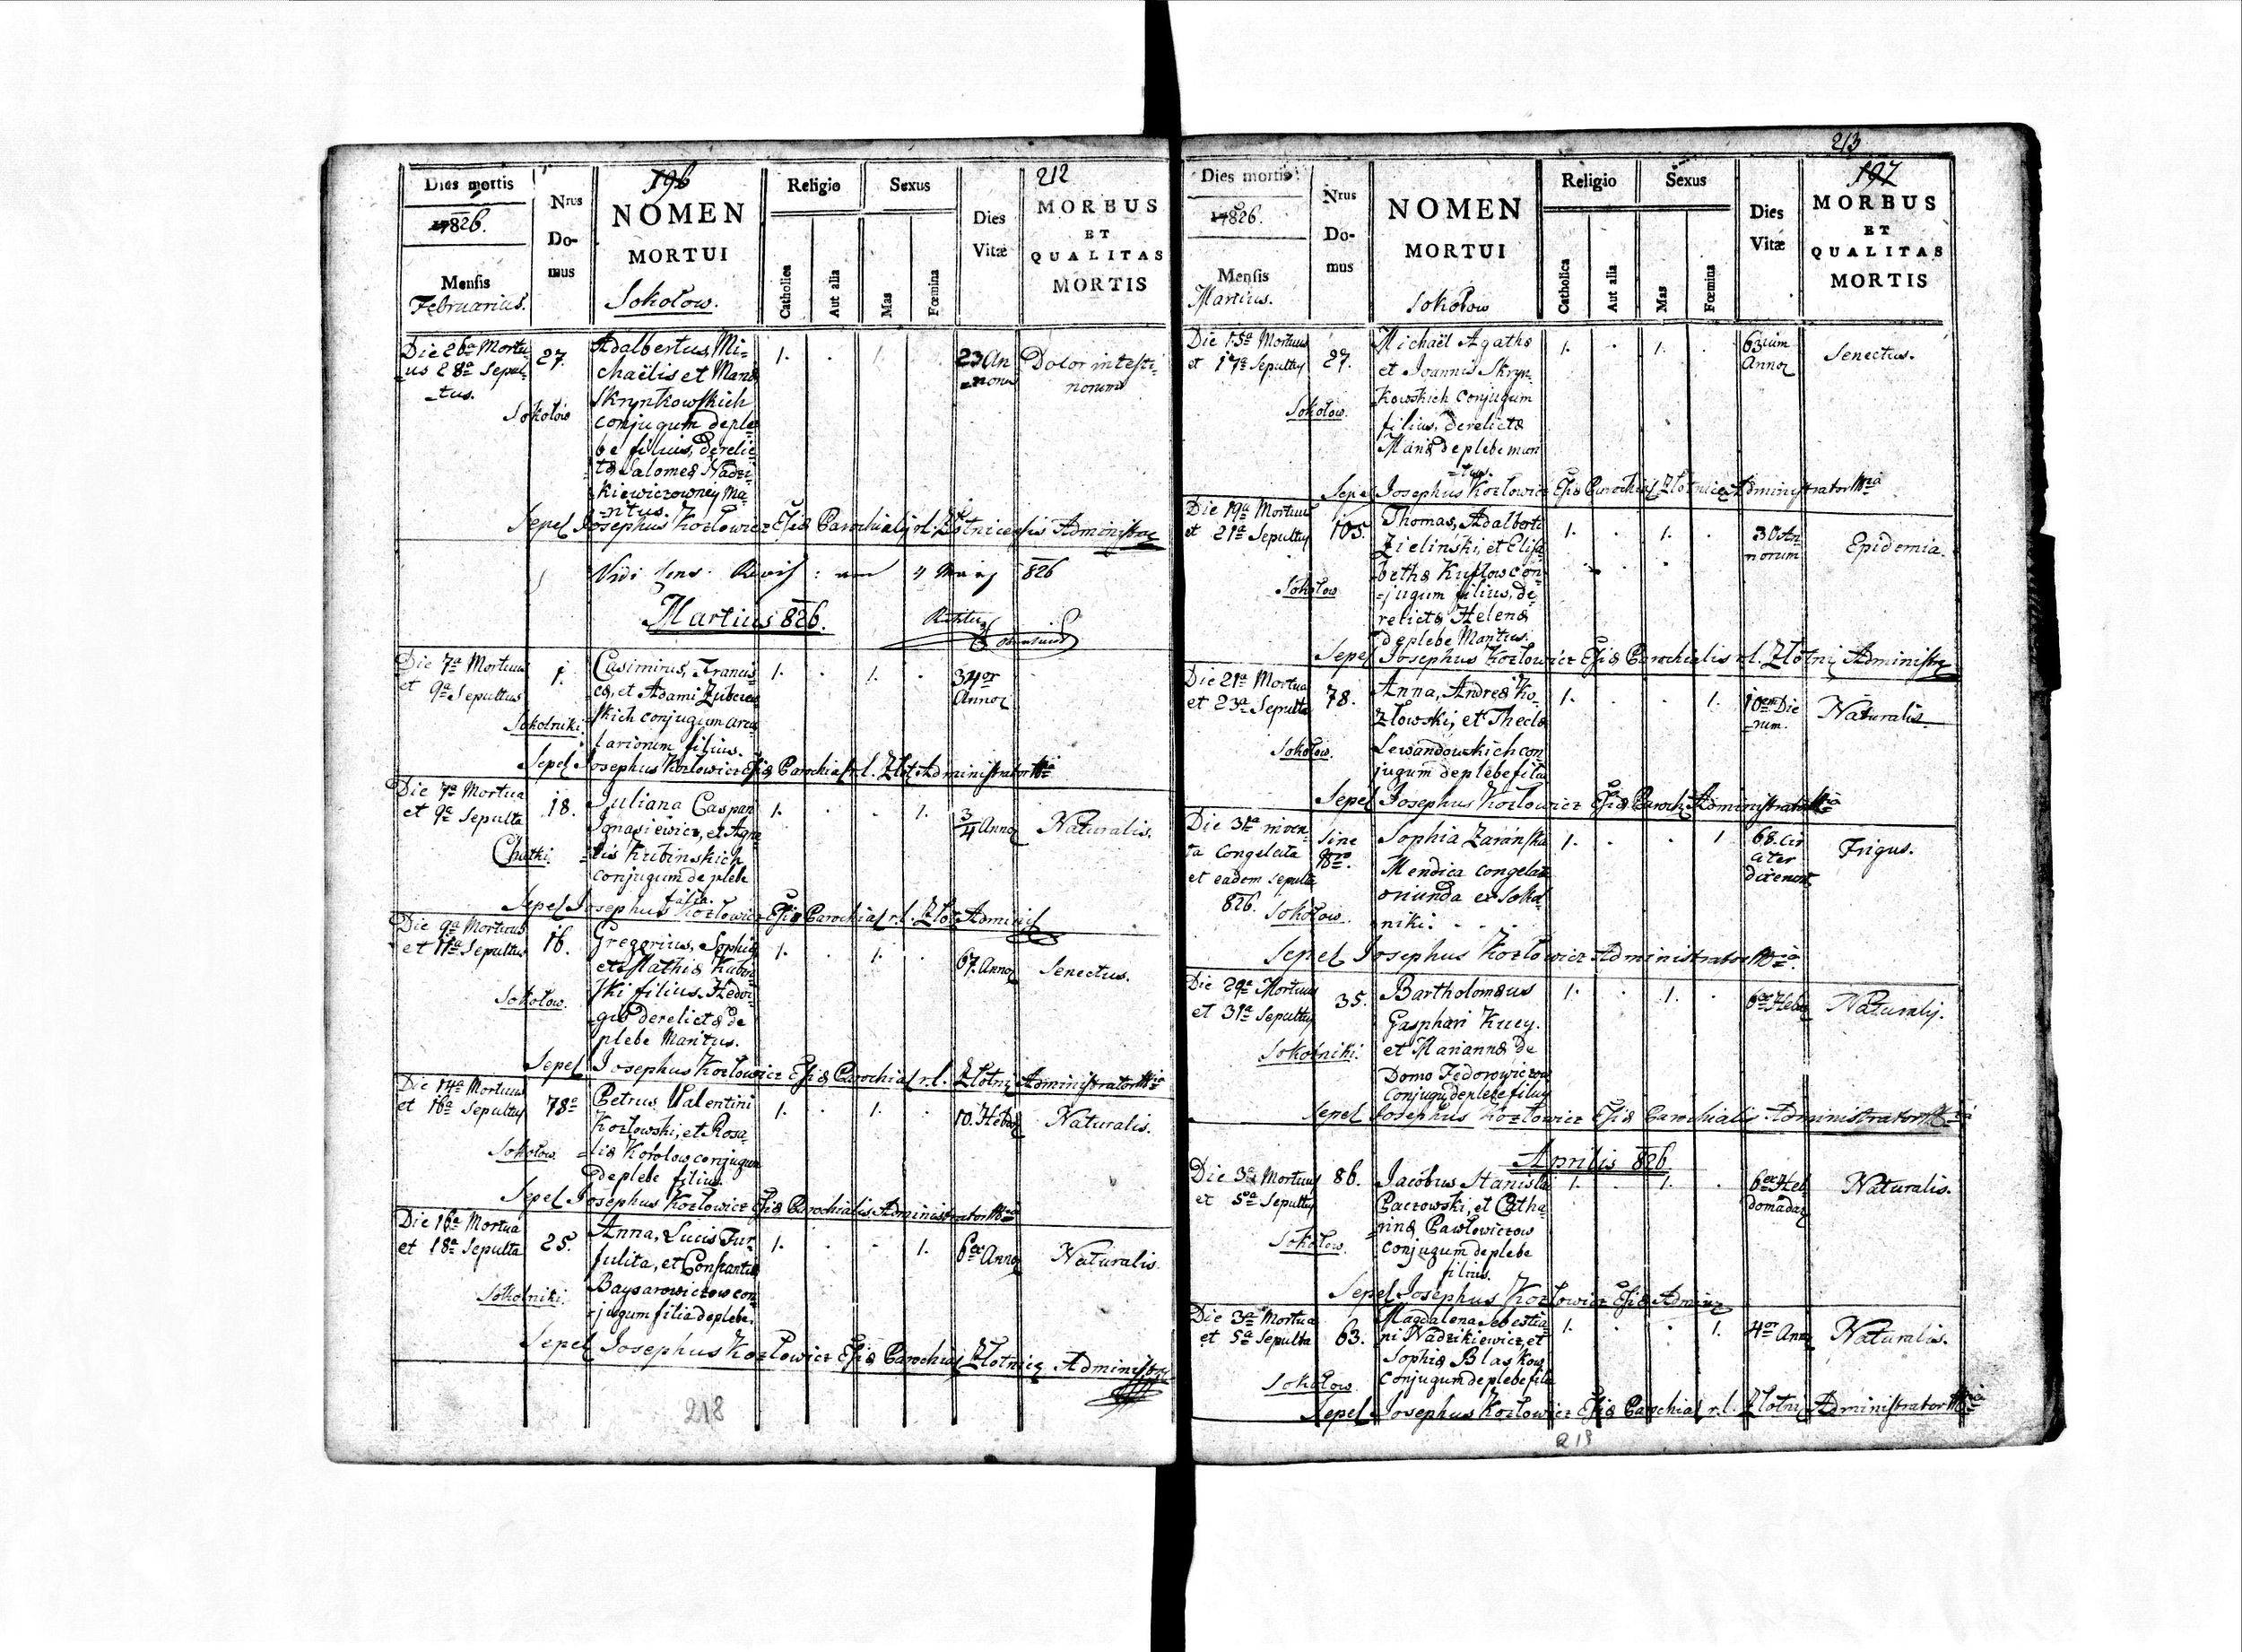 196
212
Dies mortis
1826.
Mensis
Februarius.
Nrus
Do-
mus
NOMEN
MORTUI
Sokołow.
Religio
Catholica
Aut alia
Sexus
Mas
Fœmina
Dies
Vitæ
MORBUS
ET
QUALITAS
MORTIS
Die 26a Mortu
us 28a Sepul-
tus.
Sokołow
27.
Adalbertus, Mi-
chaëlis et Mariæ
Skrynkowskich
conjugum de ple-
be filius, derelic-
tæ Salomeæ Nadzi-
kiewiczowney Ma-
ritus.
1.
1.
23 An
norum
Dolor intesti-
norum
Sepel Josephus Kozłowicz Esiæ Parochialis r.l. Złotnicensis Administrac
Vidi
4
826
Martius 826.
Die 7a Mortuus
et 9a Sepultus
Sokolniki.
1.
Casimirus, Francis-
cæ, et Adami
skich conjugum
filius.
1.
1.
34or
Annor
Sepel Josephus Kozłowicz Esiæ Parochial r.l. Złot Administrator Mria
Die 7a Mortua
et 9a Sepulta
Chatki.
18.
Juliana Caspari
Ignasiewicz, et Agne-
tis Kubinskich
conjugum de plebe
filia.
1.
1.
3/4 Annor
Naturalis.
Sepel Josephus Kozłowicz Esiæ Parochial r.l. Złot Adminis
Die 9a Mortuus
et 11a Sepultus
Sokołow.
16.
Gregorius, Sophiæ
et Mathiæ Kubin
ski filius. Hedvi-
gis derelictæ de
plebe Maritus.
1.
1.
67. Annor
Senectus.
Sepel Josephus Kozłowicz Esiæ Parochial r.l. Złotni Administrator Mria
Die 14a Mortuus
et 16a Sepultus
Sokołow.
78a
Petrus Valentini
Kozłowski, et Rosa-
liæ Korolow conjugum
de plebe filius.
1.
1.
10. Hebdo
Naturalis.
Sepel Josephus Kozłowicz Esiæ Parochialis Administrator Mria
Die 16a Mortua
et 18a Sepulta
Sokolniki.
25.
Anna, Lucis Fur-
julita, et Constantiæ
Baysarowiczow con-
jugum filia de plebe.
1.
1.
6ex Annor
Naturalis
Sepel Josephus Kozłowicz Esiæ Parochial Złotnicz Administrac
218
213
197
Dies mortis
1826.
Mensis
Martius.
Nrus
Do-
mus
NOMEN
MORTUI
Sokołow
Religio
Catholica
Aut alia
Sexus
Mas
Fœmina
Dies
Vitæ
MORBUS
ET
QUALITAS
MORTIS
Die 15a Mortuus
et 17a Sepultus
Sokołow.
27.
Michaël Agathæ
et Joannis Skryn-
kowskich conjugum
filius, derelictæ
Mariæ de plebe mari
tus.
1.
1.
63ium
Annor
Senectus.
Sepel Josephus Kozłowicz Esiæ Parochial Złotnicz Administrator Mria
Die 19a Mortuus
et 21a Sepultus
Sokołow
105.
Thomas, Adalberti
Zielinski, et Elisa-
bethæ Kuflow con-
jugum filius, de-
relictæ Helenæ
de plebe Maritus.
1.
1.
30 An-
norum
Epidemia.
Sepel Josephus Kozłowicz Esiæ Parochialis r.l. Złotni Administrac
Die 21a Mortua
et 23a Sepulta
Sokołow.
78.
Anna, Andreæ Ko-
złowski, et Theclæ
Lewandowskich con
jugum de plebe filia
1.
1.
10em Die
rum.
Naturalis
Sepel Josephus Kozłowicz Esiæ Paroch Administrator Mria
Die 31a inven-
ta congelata
et eadem sepulta
826.
Sokołow.
sine
Nro.
Sophia Zaranska
Mendica congelata
oriunda ex Sokol
niki.
1.
1
68. cir
citer
dicenat
Frigus.
Sepel Josephus Kozłowicz Administrator Mria.
Die 29a Mortuus
et 31a Sepultus
Sokolniki.
35.
Bartholomæus
Gasphari Kucy.
et Mariannæ de
Domo Fedorowiczow
Conjugum de plebe filius
1.
1.
6ex Hebdo
Naturalis.
Sepel Josephus Kozłowicz Esiæ Parochialis Administrator Mria
Aprilis 826
Die 3a Mortuus
et 5a Sepultus
Sokołow.
86.
Jacobus Stanislai
Paczowski, et Catha-
rinæ Pawłowiczow
conjugum de plebe
filius.
1.
1.
6ex Heb-
domadar
Naturalis.
Sepel Josephus Kozłowicz Esiæ Adminr
Die 3a Mortua
et 5a Sepulta
Sokołow.
63.
Magdalena Sebestia-
ni Nadzikiewicz, et
Sophiæ Blaskow
conjugum de plebe filia
1.
1.
4or Annor
Naturalis.
Sepel Josephus Kozłowicz Esiæ Parochial r.l. Złotni Administrator Mria
219